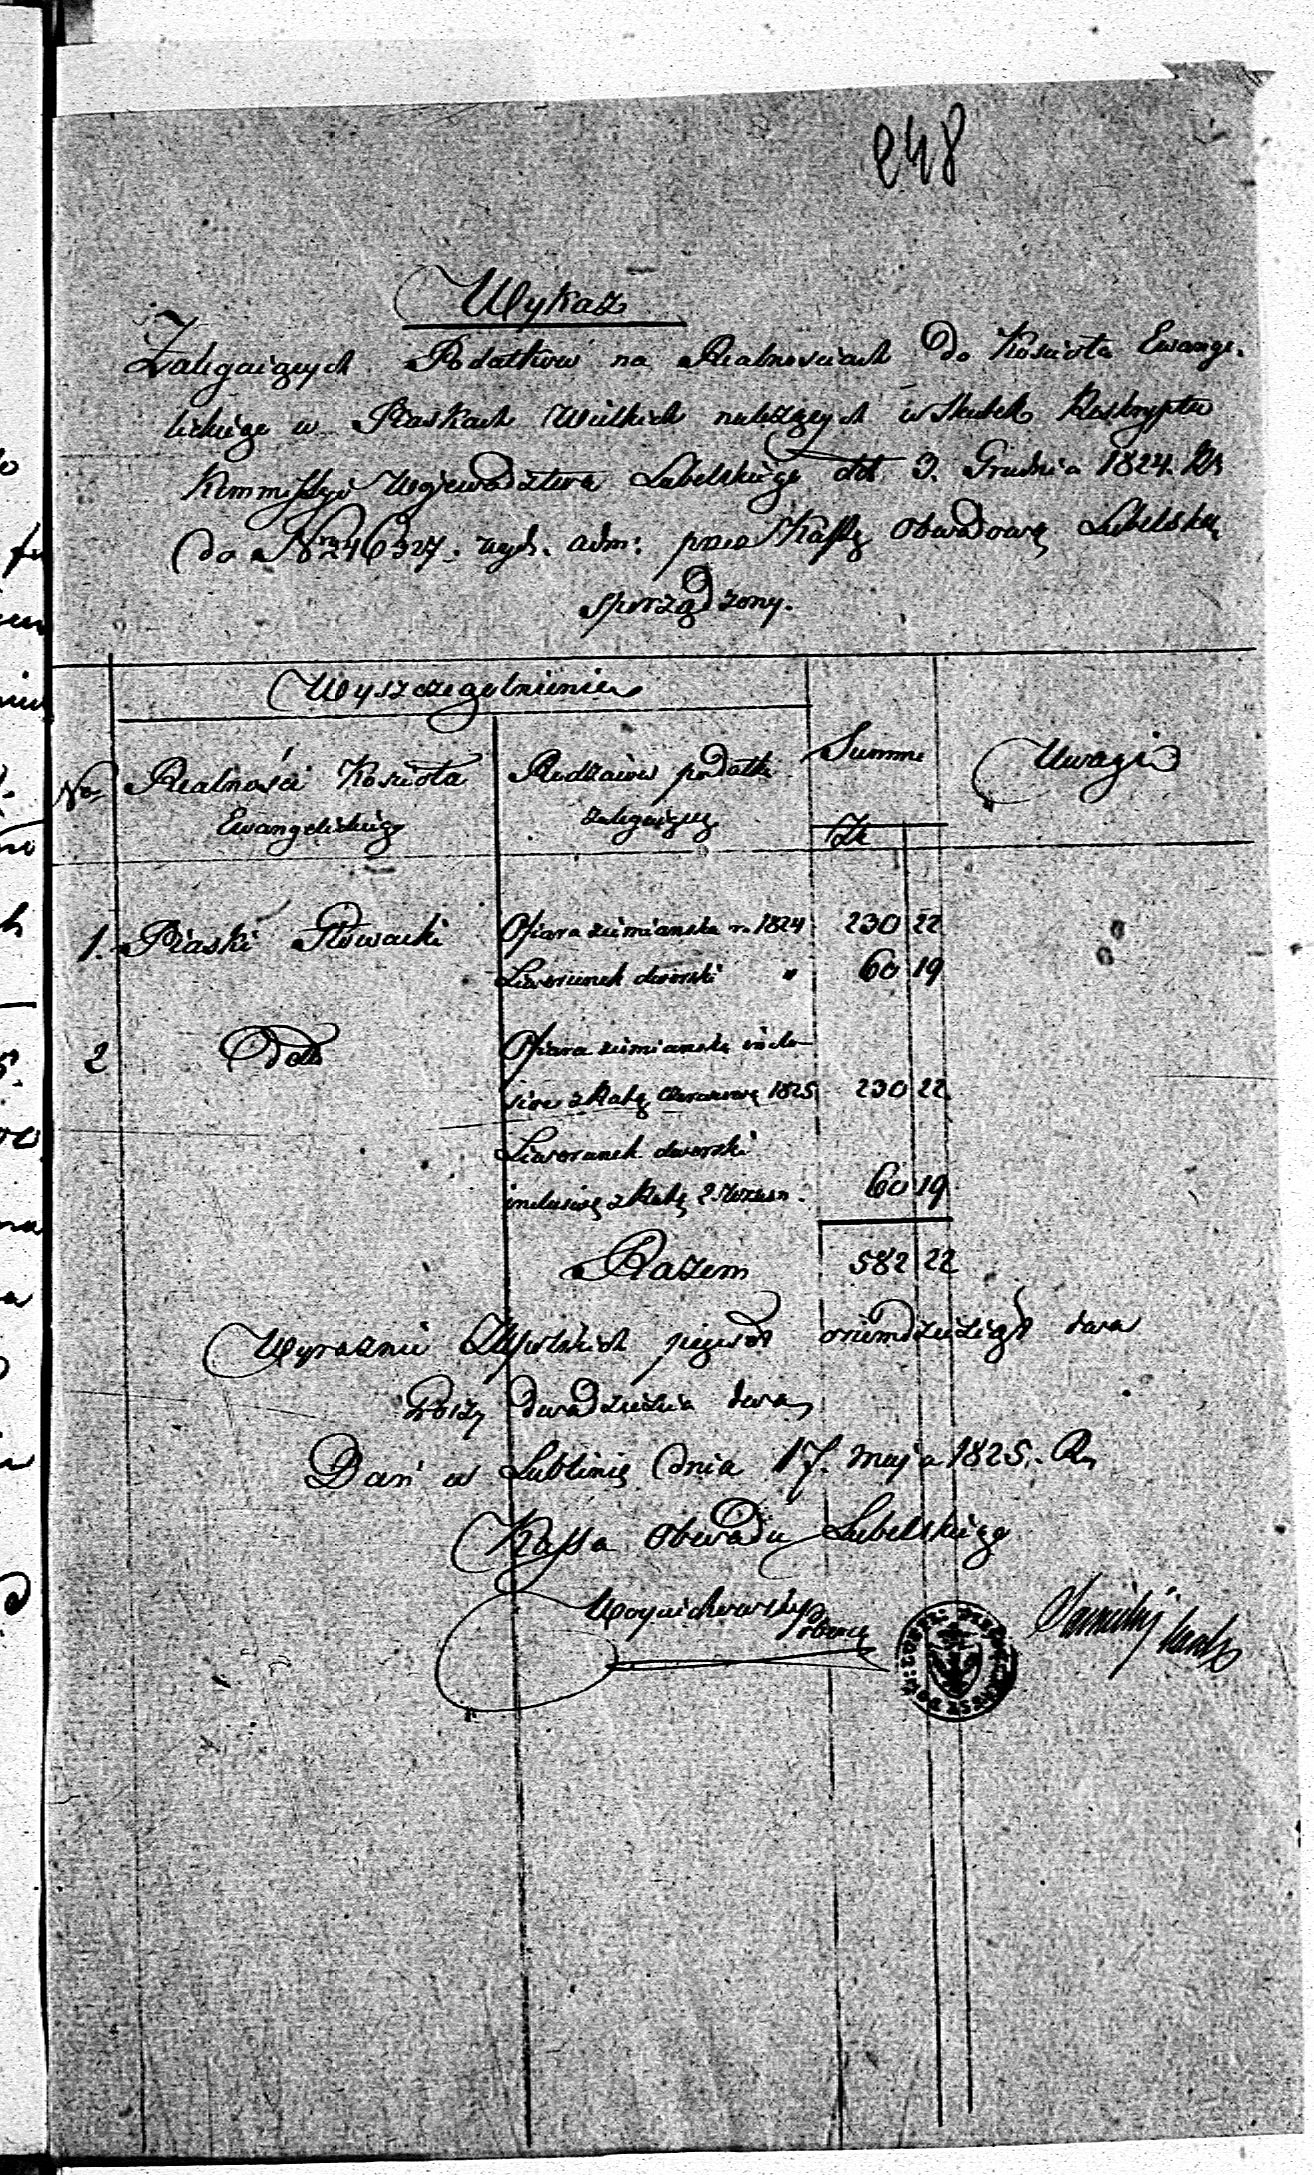 248
Wykaz
Zalegaiących Podatków na Realnościach do Kościoła Ewange-
lickiego w Piaskach Wielkich należących w skutek Reskryptu
Kommissyi Wojewodztwa Lubelskiego dtt 3. Grudnia 1824. R
do Nr 246327. wyd. adm: przez Kassę Obwodową Lubelską
sporządzony.
Wyszczegolnienie
No Realności Kościoła Rodzaiów podatku Summa Uwagi
Ewangelickiego zalegaiący Zł
1. Piaski Ofiara ziemianska r. 1824 230 22
Liwerunek dworski " 60 19
2 Detto Ofiara ziemianska inclu-
sive z Ratą Czerwcową 1825 230 22
Liwerunek dworski
inclusive z Ratą 60 19
Razem 582 22
Wyraznie Złł polskich pięćset ośmdziesiąt dwa
groszy dwadzieścia dwa
Dan w Lublinie dnia 17. Maja 1825. R
Kassa Obwodu Lubelskiego